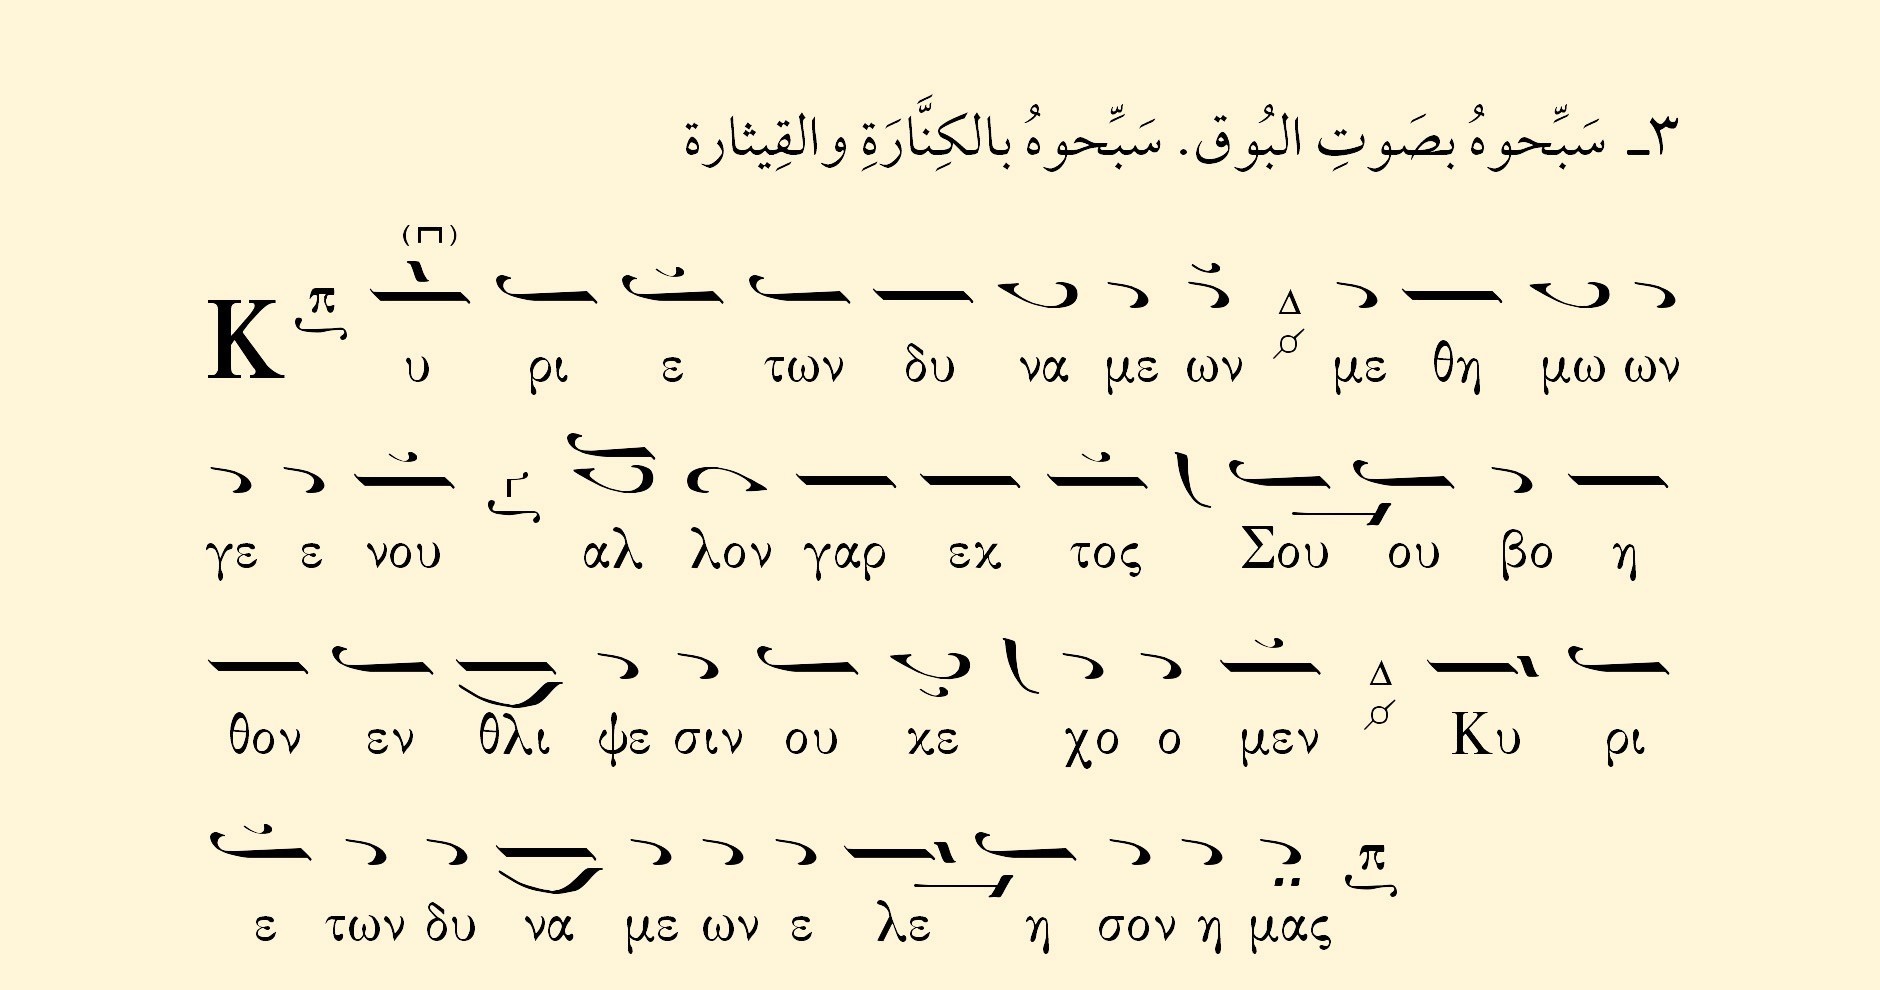 ٣ـ سَبِّحوهُ بصَوتِ البُوق. سَبِّحوهُ بالكِنَّارَةِ والقِيثارة
Κ π υ ρι ε των δυ να με ων Δ με θη μω ων
γε ε νου Γ αλ λον γαρ εκ τος Σου ου βο η
θον εν θλι ψε σιν ου κε χο ο μεν Δ Κυ ρι
ε των δυ να με ων ε λε η σον η μας π